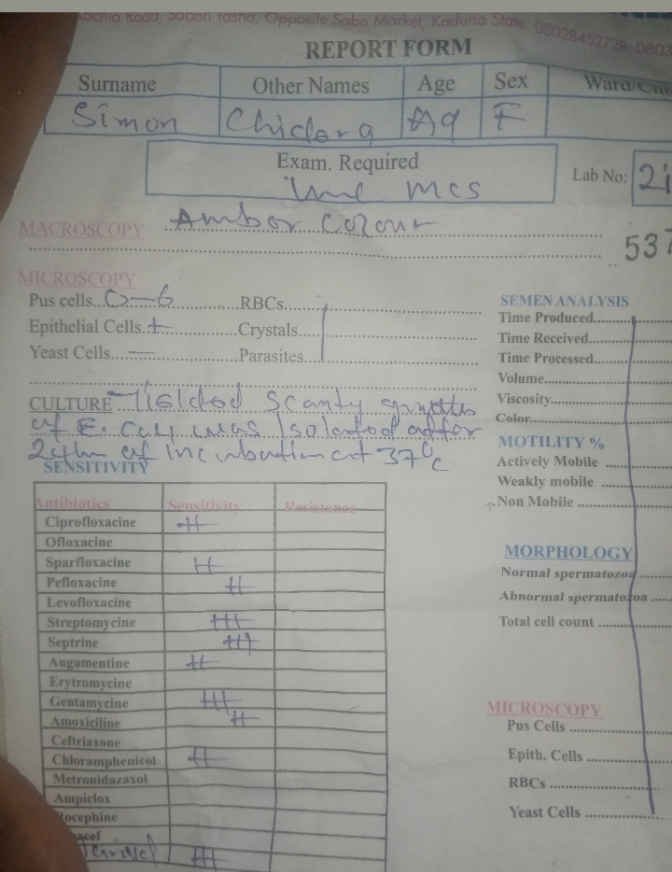 Kachia Road, Sabon Tasha, Opposite Sabo Market, Kaduna State. 08028452728, 0803
REPORT FORM
Surname Other Names Age Sex
Simon F
Exam. Required
mcs
Lab No:
MACROSCOPY Ambor Colour
537
MICROSCOPY
Pus cells 0-6 RBCs
Epithelial Cells + Crystals
Yeast Cells — Parasites
CULTURE Yielded Scanty growth
of E. coli was Isolated after
24hr of incubation at 37°c
SENSITIVITY
Antibiotics Sensitivity Resistance
Ciprofloxacine ++
Ofloxacine
Sparfloxacine ++
Pefloxacine ++
Levofloxacine
Streptomycine +++
Septrine +++
Augumentine ++
Erytromycine
Gentamycine +++
Amoxiciline ++
Ceftriaxone
Chloramphenicol ++
Metronidazasol
Ampiclox
Rocephine
+++
SEMEN ANALYSIS
Time Produced
Time Received
Time Processed
Volume
Viscosity
Color
MOTILITY %
Actively Mobile
Weakly mobile
Non Mobile
MORPHOLOGY
Normal spermatozoa
Abnormal spermatozoa
Total cell count
MICROSCOPY
Pus Cells
Epith. Cells
RBCs
Yeast Cells